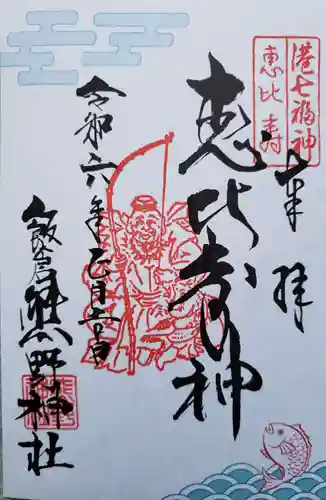 港七福神
恵比寿
奉拝
恵比寿神
令和六年正月六日
飯倉熊野神社